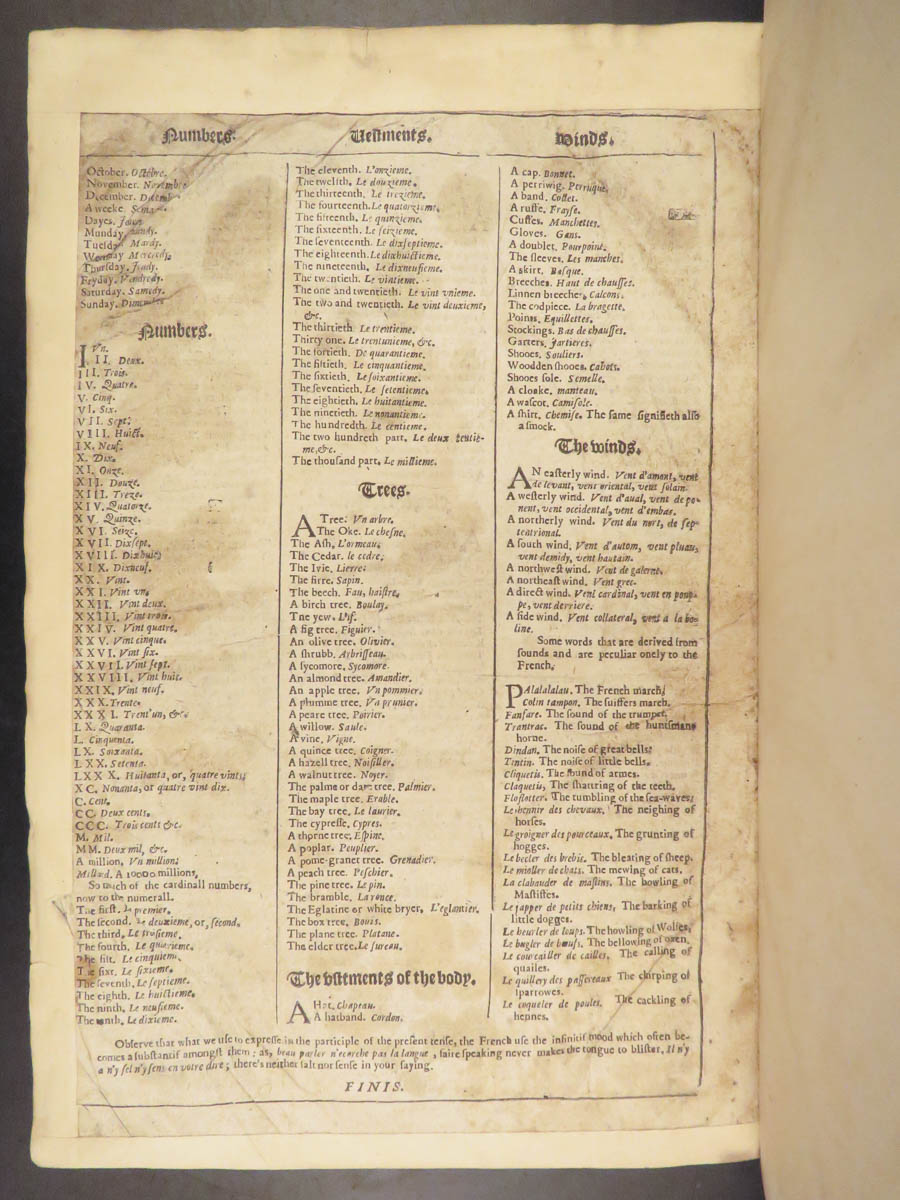 Numbers.
Vestments.
Winds.
October. Octobre.
November. Novembre
December. Decemb
A weeke. Sema
Dayes. Jours
Munday. Lundy.
Tuesday Mardy.
Wensday Mecredy.
Thursday. Jeudy.
Fryday. Vendredy.
Saturday. Samedy.
Sunday. Dimenche
Numbers.
I. Vn.
II. Deux.
III. Trois.
IV. Quatre.
V. Cinq.
VI. Six.
VII. Sept.
VIII. Huict.
IX. Neuf.
X. Dix.
XI. Onze.
XII. Douze.
XIII. Treze.
XIV. Quatorze.
XV. Quinze.
XVI. Seize.
XVII. Dixsept.
XVIII. Dixhuict
XIX. Dixneuf.
XX. Vint.
XXI. Vint vn.
XXII. Vint deux.
XXIII. Vint trois.
XXIV. Vint quatre.
XXV. Vint cinque.
XXVI. Vint six.
XXVII. Vint sept.
XXVIII. Vint huit.
XXIX. Vint neuf.
XXX. Trente.
XXXI. Trent'un, &c.
LX. Quaranta.
L. Cinquenta.
LX. Soixanta.
LXX. Setenta.
LXXX. Huitanta, or, quatre vints;
XC. Nonanta, or quatre vint dix.
C. Cent.
CC. Deux cents.
CCC. Trois cents &c.
M. Mil.
MM. Deux mil, &c.
A million, Vn million:
Millard. A 10000 millions,
So much of the cardinall numbers,
now to the numerall.
The first. Le premier.
The second. Le deuxieme, or, second.
The third. Le troisieme.
The fourth. Le quatrieme.
The fift. Le cinquieme.
The sixt. Le sixieme.
The seventh. Le septieme.
The eighth. Le huictieme.
The ninth. Le neufieme.
The tenth. Le dixieme.
The eleventh. L'onzieme.
The twelfth. Le douzieme.
The thirteenth. Le trezieme.
The fourteenth. Le quatorzieme.
The fifteenth. Le quinzieme.
The sixteenth. Le seizieme.
The seventeenth. Le dixseptieme.
The eighteenth. Le dixhuictieme.
The nineteenth. Le dixneufieme.
The twentieth. Le vintieme.
The one and twentieth. Le vint vnieme.
The two and twentieth. Le vint deuxieme,
&c.
The thirtieth Le trentieme.
Thirty one. Le trentunieme, &c.
The fortieth. De quarantieme.
The fiftieth. Le cinquantieme.
The sixtieth. Le soixantieme.
The seventieth. Le setentieme.
The eightieth. Le huitantieme.
The ninetieth. Le nonantieme.
The hundredth. Le centieme.
The two hundreth part. Le deux centie-
me, &c.
The thousand part. Le millieme.
Trees.
A Tree. Vn arbre.
The Oke. Le chesne.
The Ash, L'ormeau.
The Cedar. le cedre;
The Ivie. Lierre:
The firre. Sapin.
The beech. Fau, haistre.
A birch tree. Boulay.
The yew. L'if.
A fig tree. Figuier.
An olive tree. Olivier.
A shrubb. Arbrisseau.
A sycomore. Sycomore
An almond tree. Amandier.
An apple tree. Vn pommier.
A plumme tree. Vn prunier.
A peare tree. Poirier.
A willow. Saule.
A vine. Vigne.
A quince tree. Coigner.
A hazell tree. Noisiller.
A walnut tree. Noyer.
The palme or date tree. Palmier.
The maple tree. Erable.
The bay tree. Le laurier.
The cypresse. Cypres.
A thorne tree. Espine.
A poplar. Peuplier.
A pome-granet tree. Grenadier.
A peach tree. Peschier.
The pine tree. Le pin.
The bramble. La ronce.
The Eglatine or white bryer. L'eglantier.
The box tree. Bouis.
The plane tree. Platane.
The elder tree. Le sureau.
The vestments of the body.
A Hat. Chapeau.
A hatband. Cordon.
A cap. Bonnet.
A perriwig. Perruque.
A band. Collet.
A ruffe. Frayse.
Cuffes. Manchettes.
Gloves. Gans.
A doublet. Pourpoint.
The sleeves. Les manches.
A skirt. Basque.
Breeches. Haut de chausses.
Linnen breeches. Calcons.
The codpiece. La bragette.
Points. Equillettes.
Stockings. Bas de chausses.
Garters. Jartieres.
Shooes. Souliers.
Wodden shooes. Cabots.
Shooes sole. Semelle.
A cloake. manteau.
A wascot. Camisole.
A shirt. Chemise. The same signifieth also
a smock.
The winds.
AN easterly wind. Vent d'amont, vent
de levant, vent oriental, vent solain.
A westerly wind. Vent d'aual, vent de po-
nent, vent occidental, vent d'embas.
A northerly wind. Vent du nort, de sep-
tentrional.
A south wind. Vent d'autom, vent pluau,
vent demidy, vent hautain.
A northwest wind. Vent de galerne.
A northeast wind. Vent grec.
A direct wind. Vent cardinal, vent en poup-
pe, vent derriere.
A side wind. Vent collateral, vent a la bo-
line.
Some words that are derived from
sounds and are peculiar onely to the
French.
PAlalalalau. The French march.
Colin tampon. The suissers march.
Fanfare. The sound of the trumpet.
Trantrac. The sound of the huntsmans
horne.
Dindan. The noise of great bells:
Tintin. The noise of little bells.
Cliquetis. The sound of armes.
Claquetis, The shattring of the teeth.
Flosflotter. The tumbling of the sea-waves:
Le hennir des chevaux. The neighing of
horses.
Le groigner des pourceaux. The grunting of
hogges.
Le beeler des brebis. The bleating of sheep.
Le mioller de chats. The mewing of cats.
La clabauder de mastins. The howling of
Mastisses.
Le japper de petits chiens. The barking of
little dogges.
Le heurler de loups. The howling of Wolfes.
Le bugler de bœufs. The bellowing of oxen.
Le courcailler de cailles. The calling of
quailes.
Le quillery des passereaux The chirping of
sparrowes.
Le coqueler de poules. The cackling of
hennes.
Observe that what we use to expresse in the participle of the present tense, the French use the infinitif mood which often be-
comes a substantif amongst them; as, beau parler n'ecorche pas la langue, faire speaking never makes the tongue to blister, Il n'y
a n'y sel n'y sens en votre dire; there's neither salt nor sense in your saying.
FINIS.